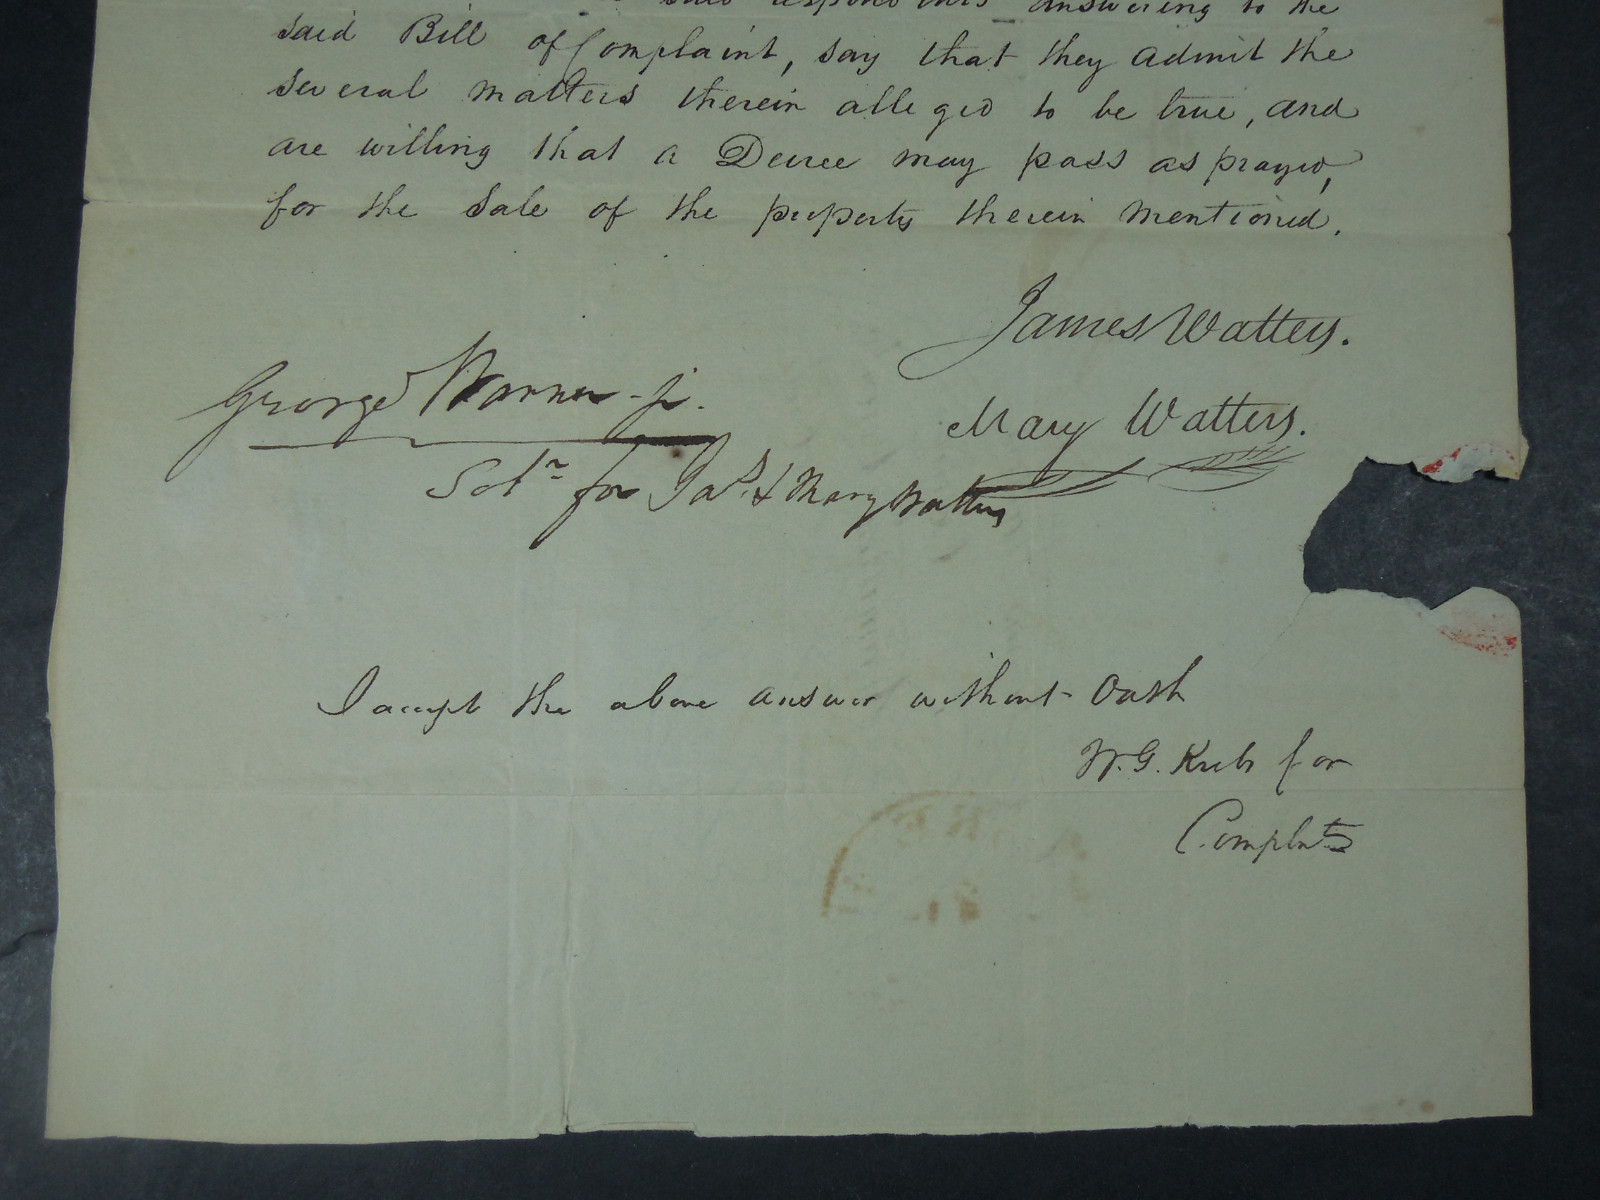 said respondents answering to the
said Bill of Complaint, say that they admit the
several matters therein alleged to be true, and
are willing that a Decree may pass as prayed,
for the sale of the property therein mentioned.
James Watters.
George Warner Jr.
Mary Watters.
Solr for Jas. & Mary Watters
I accept the above answer without Oath
W. G. Krebs for
Complnts